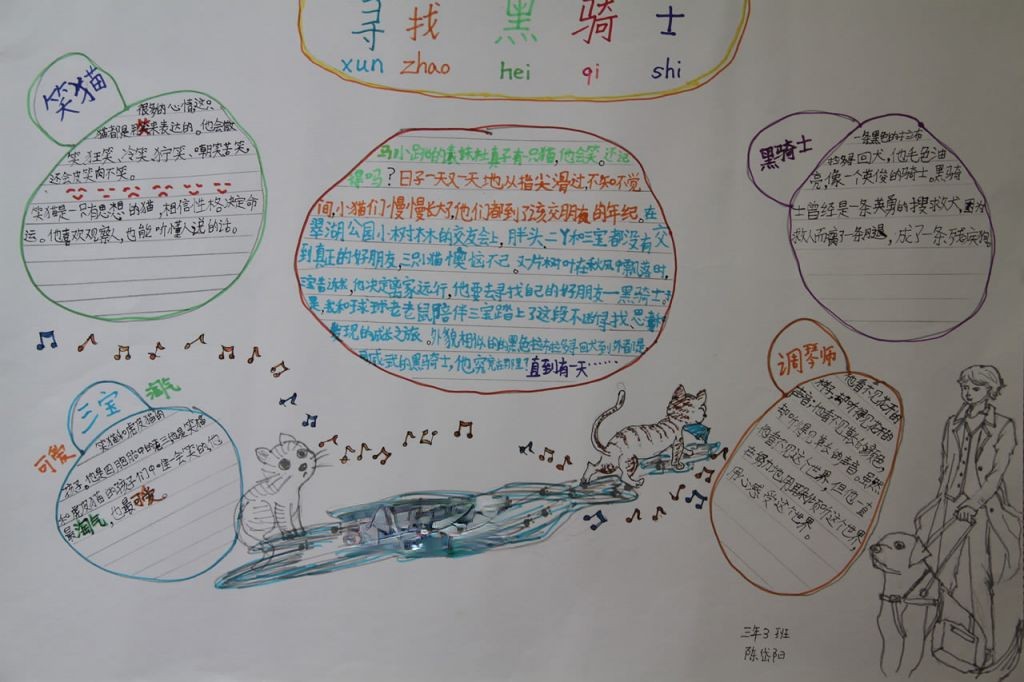 寻找黑骑士
xun zhao hei qi shi
笑猫
很多的心情这只
猫都是用笑来表达的。他会微
笑、狂笑、冷笑、狞笑、嘲笑苦笑，
还会皮笑肉不笑。
笑猫是一只有思想的猫，相信性格决定命
运。他喜欢观察人，也能听懂人说的话。
马小跳的表妹杜真子有一只猫，他会笑。还记
得吗？日子一天又一天地从指尖滑过，不知不觉
间，小猫们慢慢长大了，他们都到了该交朋友的年纪。在
翠湖公园小树林的交友会上，胖头、二丫和三宝都没有交
到真正的好朋友，三只猫懊恼不已。又片树叶在秋风中飘落时，
三宝告诉我，他决定离家远行，他要去寻找自己的好朋友—黑骑士。于
是，我和球球老老鼠陪伴三宝踏上了这段不
发现的成长之旅。外貌相似的的黑色拉布拉多寻回犬到外都是，
的黑骑士，他究竟在那里？直到有一天……
黑骑士
一条黑色的拉布
拉多寻回犬，他毛色油
亮，像一个英俊的骑士。黑骑
士曾经是一条英勇的搜救犬，因为
救人而瘸了一条腿，成了一条残疾狗。
三宝
淘气
可爱
笑猫和虎皮猫的
孩子。他是四胞胎中的第三他是笑猫
和虎皮猫的孩子们中唯一会笑的他
最淘气，也最可爱。
调琴师
他看不见花开的
样子，却听得见花开的
声音；他看不见
知听得见草长的声音。虽然
他看不见这个世界，但他一直
在努力地用耳朵倾听这个世界，
用心感受这个世界。
三年3班
陈岱阳